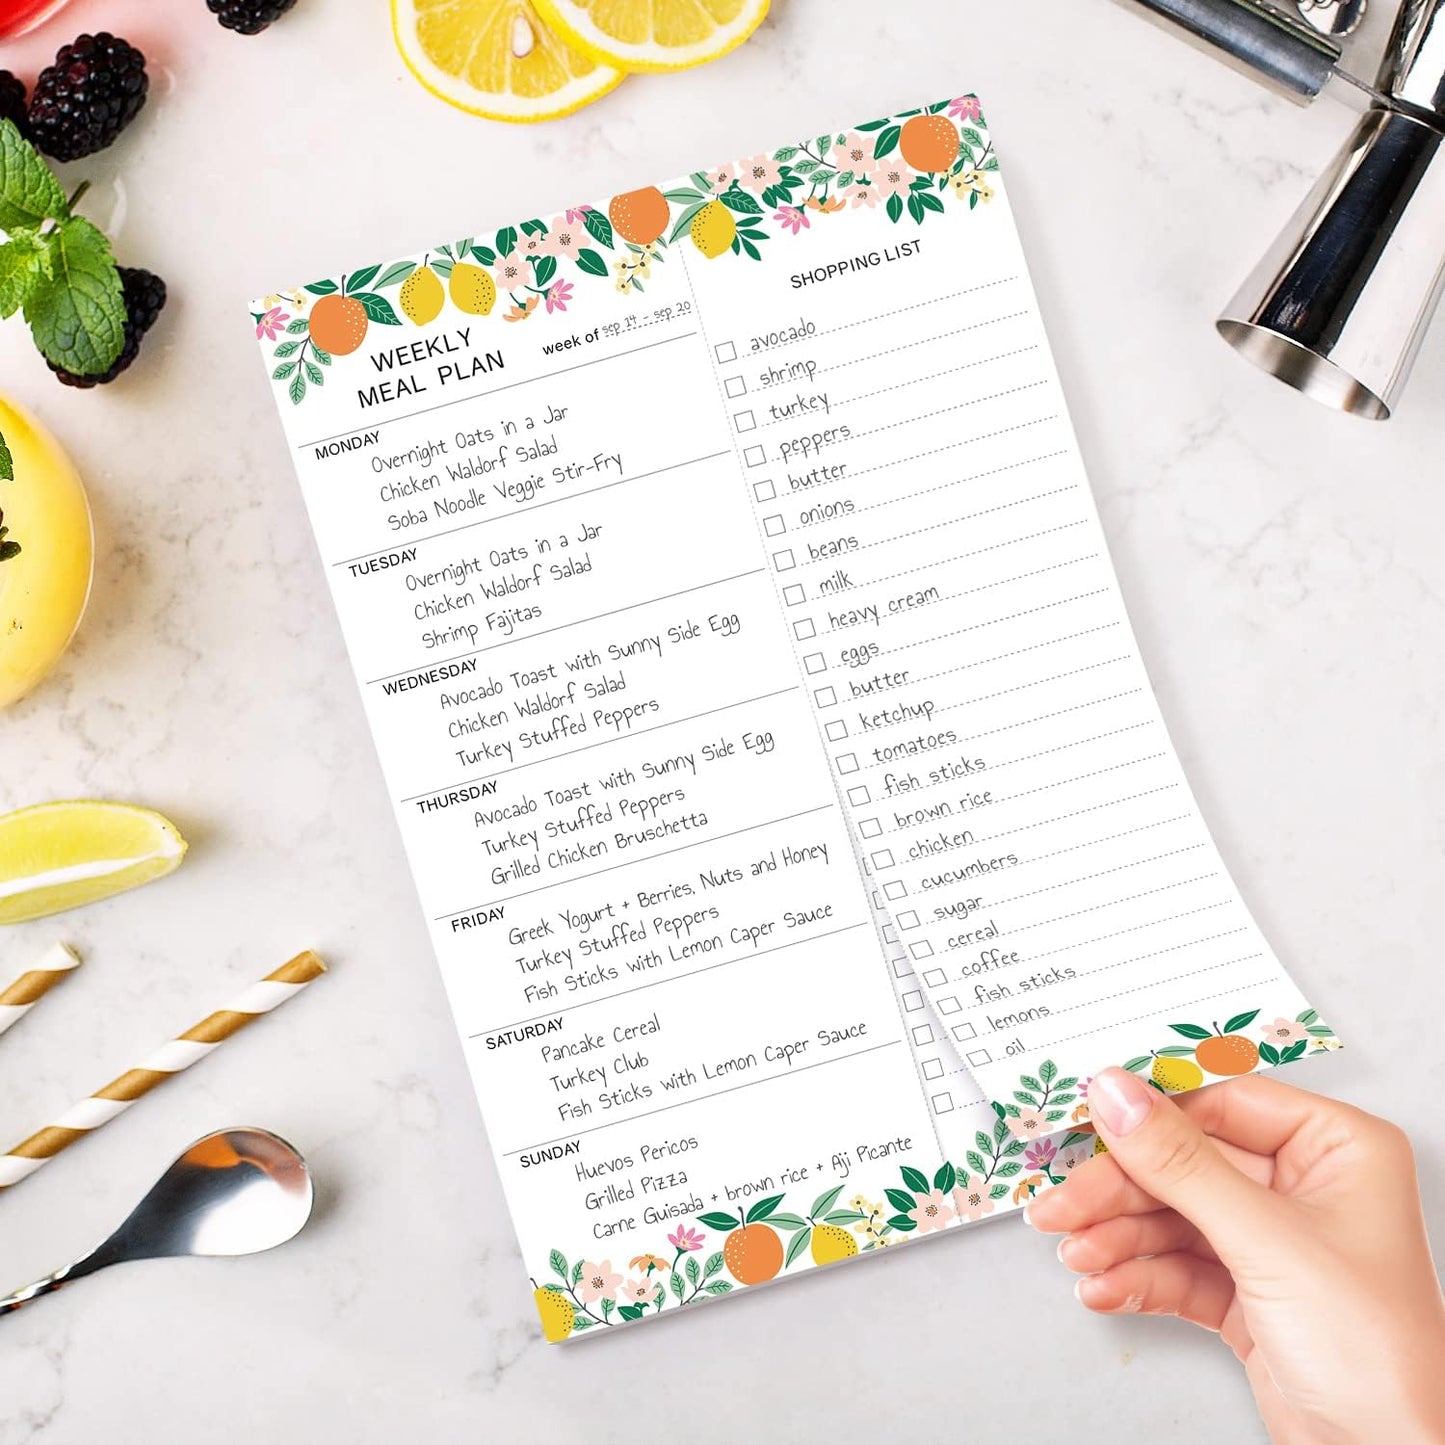 WEEKLY
MEAL PLAN
week of sep 14 - sep 20
MONDAY
Overnight Oats in a Jar
Chicken Waldorf Salad
Soba Noodle Veggie Stir-Fry
TUESDAY
Overnight Oats in a Jar
Chicken Waldorf Salad
Shrimp Fajitas
WEDNESDAY
Avocado Toast with Sunny Side Egg
Chicken Waldorf Salad
Turkey Stuffed Peppers
THURSDAY
Avocado Toast with Sunny Side Egg
Turkey Stuffed Peppers
Grilled Chicken Bruschetta
FRIDAY
Greek Yogurt + Berries, Nuts and Honey
Turkey Stuffed Peppers
Fish Sticks with Lemon Caper Sauce
SATURDAY
Pancake Cereal
Turkey Club
Fish Sticks with Lemon Caper Sauce
SUNDAY
Huevos Pericos
Grilled Pizza
Carne Guisada + brown rice + Aji Picante
SHOPPING LIST
avocado
shrimp
turkey
peppers
butter
onions
beans
milk
heavy cream
eggs
butter
ketchup
tomatoes
fish sticks
brown rice
chicken
cucumbers
sugar
cereal
coffee
fish sticks
lemons
oil